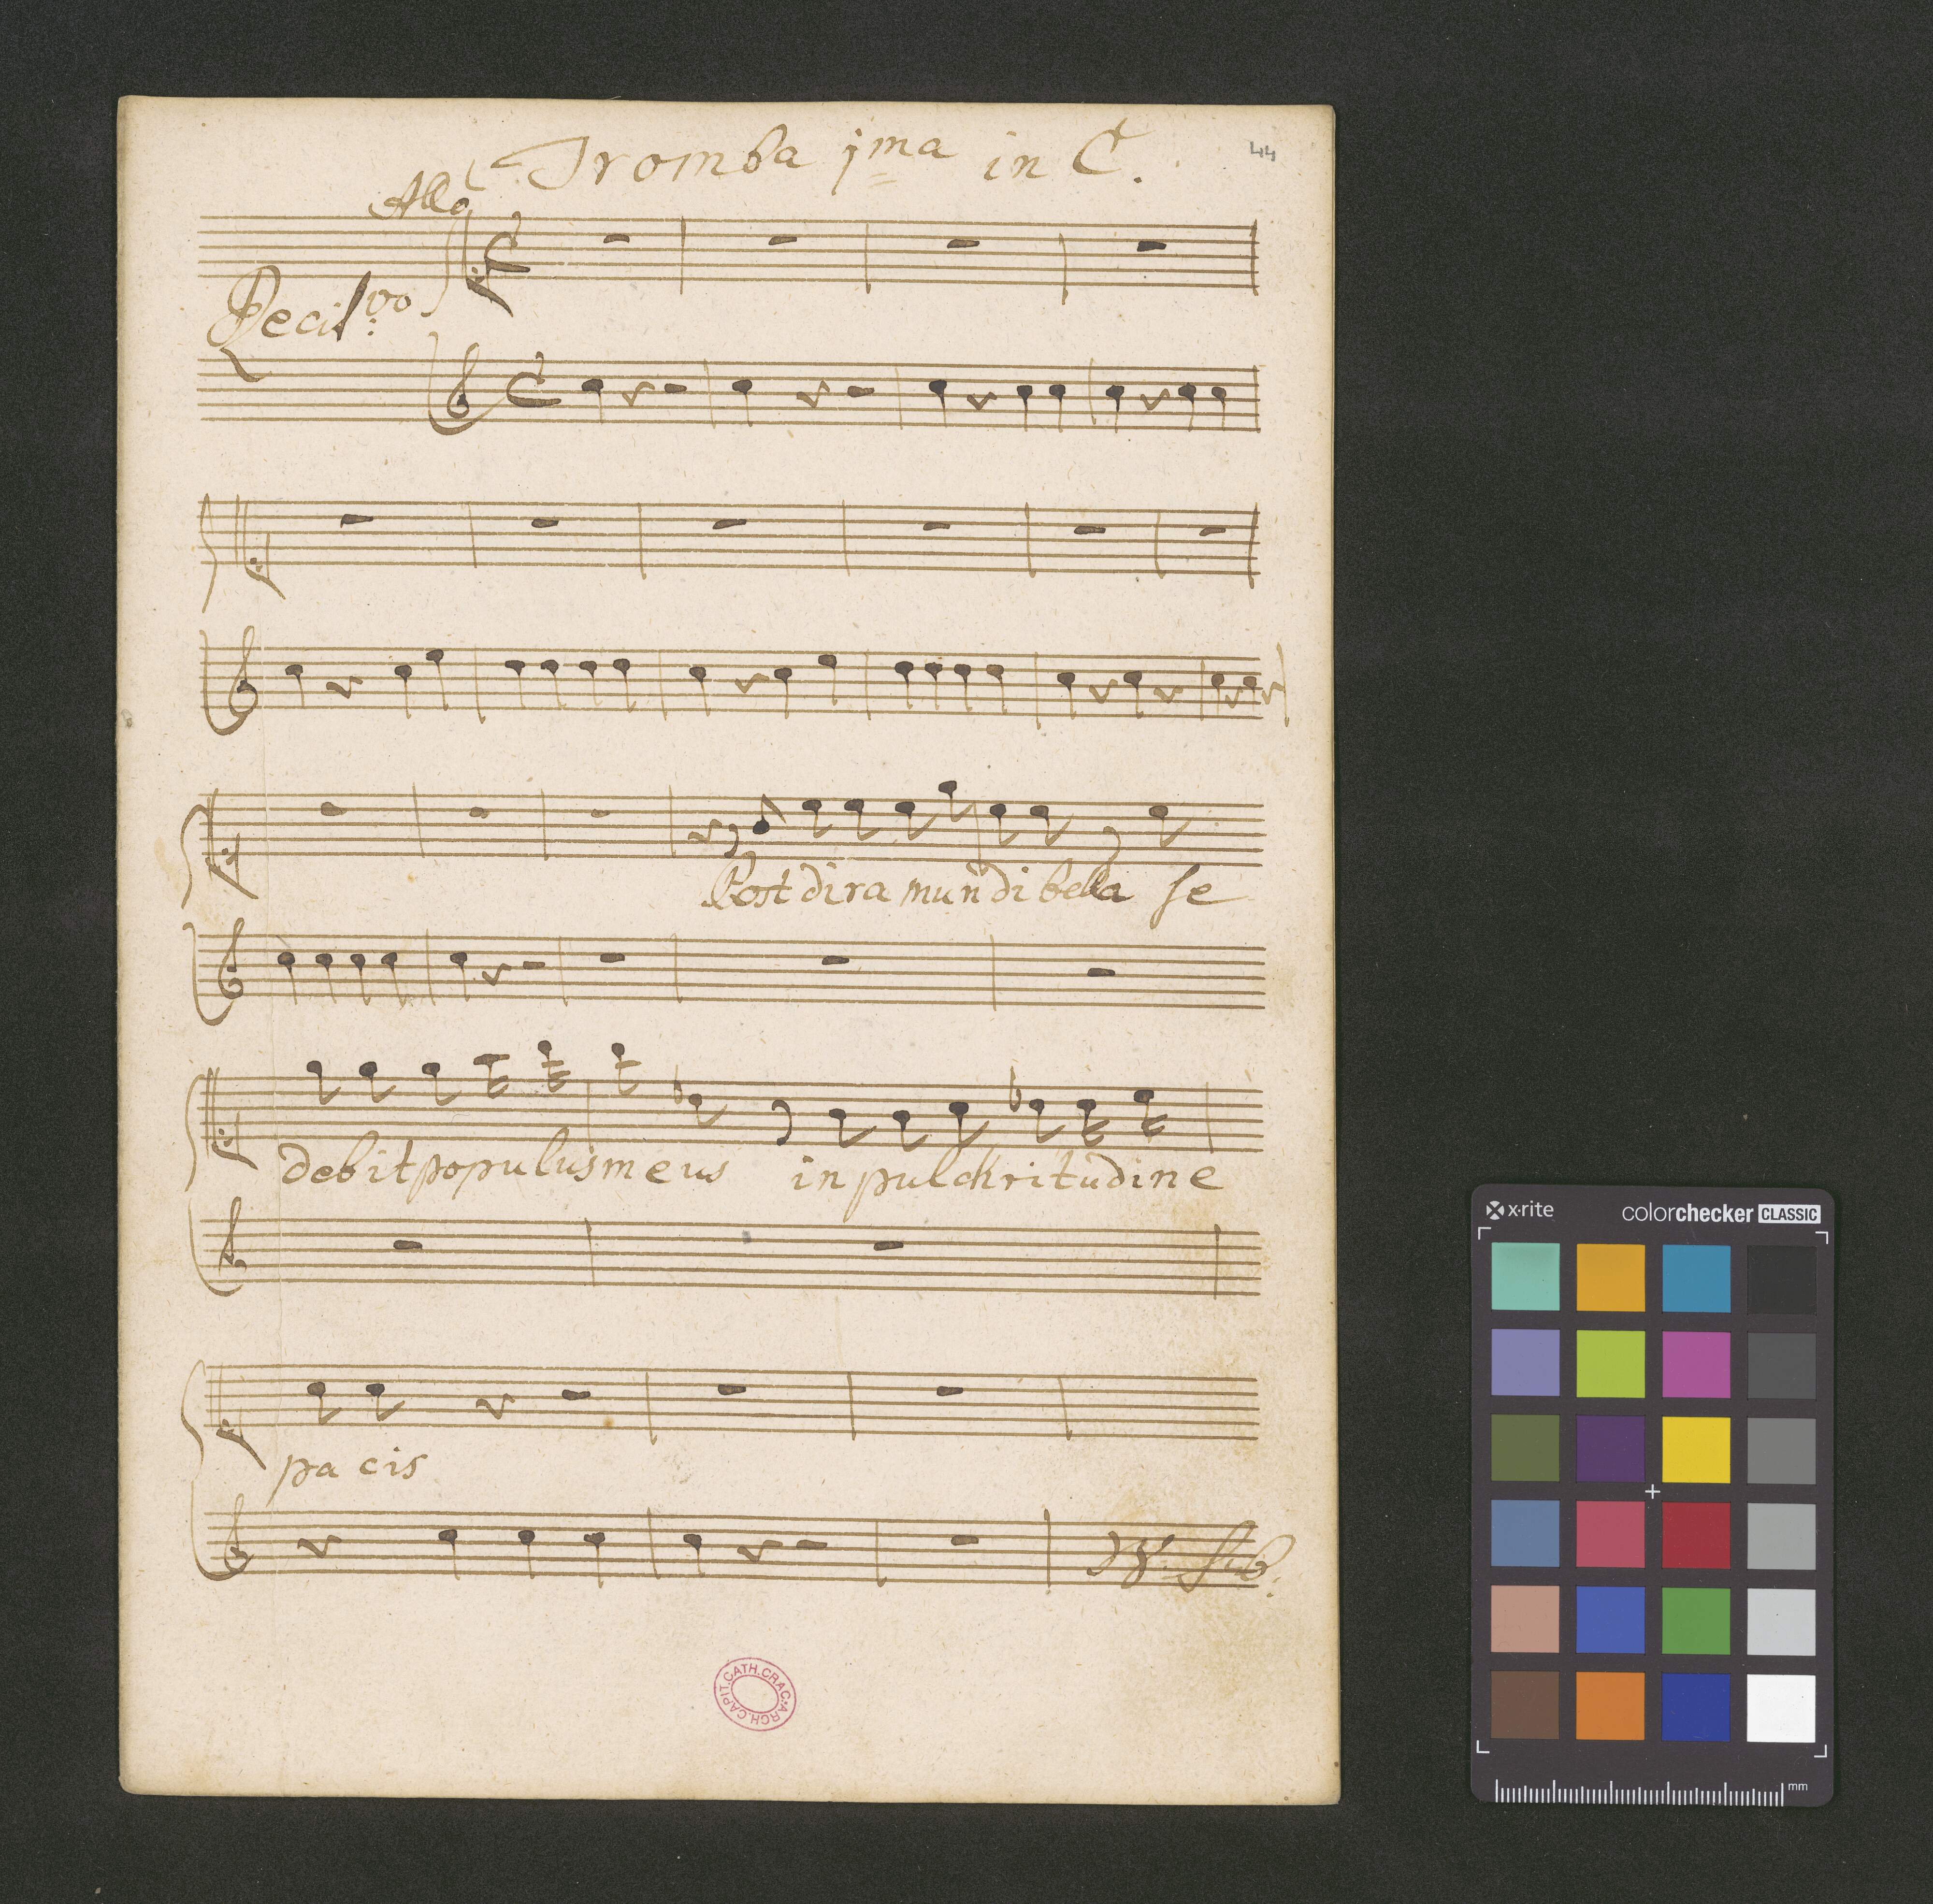 Tromba jma in C.
44
Allo
Recit:vo
Post dira mundi bella se
debit populus meus in pulchritudine
pacis
VS. Sub.
ARCH.CAPIT.CATH.CRAC.
x·rite
colorchecker CLASSIC
mm